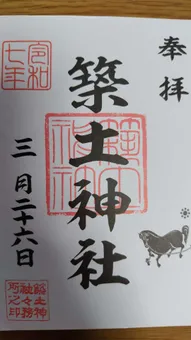 奉拝
築土神社
令和
七年
三月二十六日
築土神
社々務
所之印